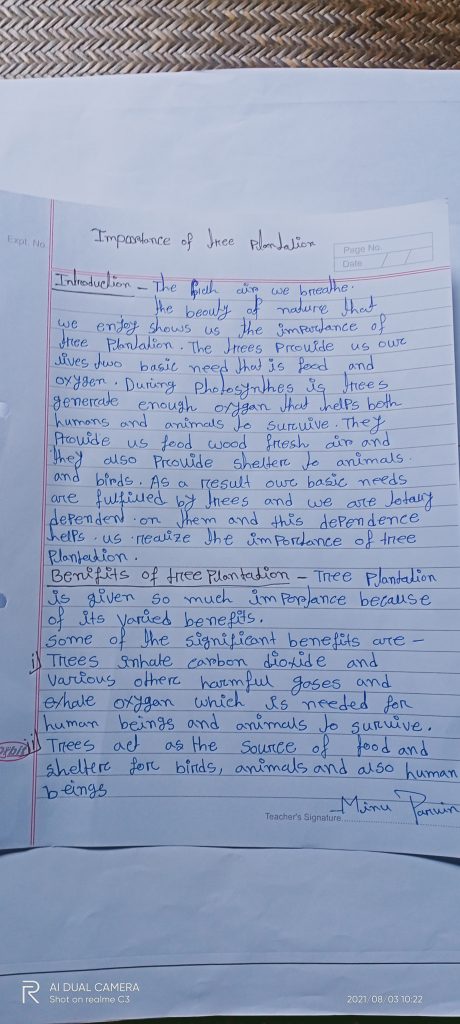 Importance of tree Plantation
Expt. No.
Page No.
Date
Introduction - The air we breathe.
the beauty of nature that
we enjoy shows us the importance of
tree Plantation. The trees Provide us our
lives two basic need that is food and
oxygen. During Photosynthes is trees
generate enough oxygan that helps both
humans and animals to survive. They
Provide us food wood fresh air and
they also Provide shelter to animals.
and birds. As a result our basic needs
are fulfilled by trees and we are totally
dependent on them and this dependence
helps us realize the importance of tree
Plantation.
Benifits of tree Plantation - Tree Plantation
is given so much importance because
of its varied benefits.
Some of the significant benefits are -
i) Trees inhale carbon dioxide and
various other harmful gases and
exhale oxygan which is needed for
human beings and animals to survive.
ii) Trees act as the source of food and
shelter for birds, animals and also human
beings
Minu Parvin
Teacher's Signature
AI DUAL CAMERA
Shot on realme C3
2021/08/03 10:22